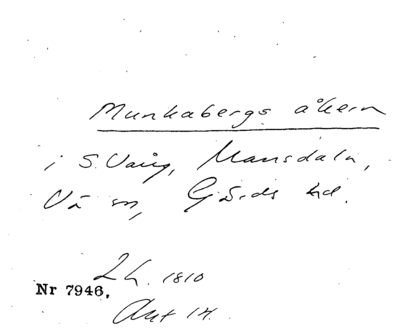 Munkabergs åkern
i S. Vång, Mansdala,
Vä sn, Gärds hd.
Lh. 1810
Nr 7946.
Akt 14.